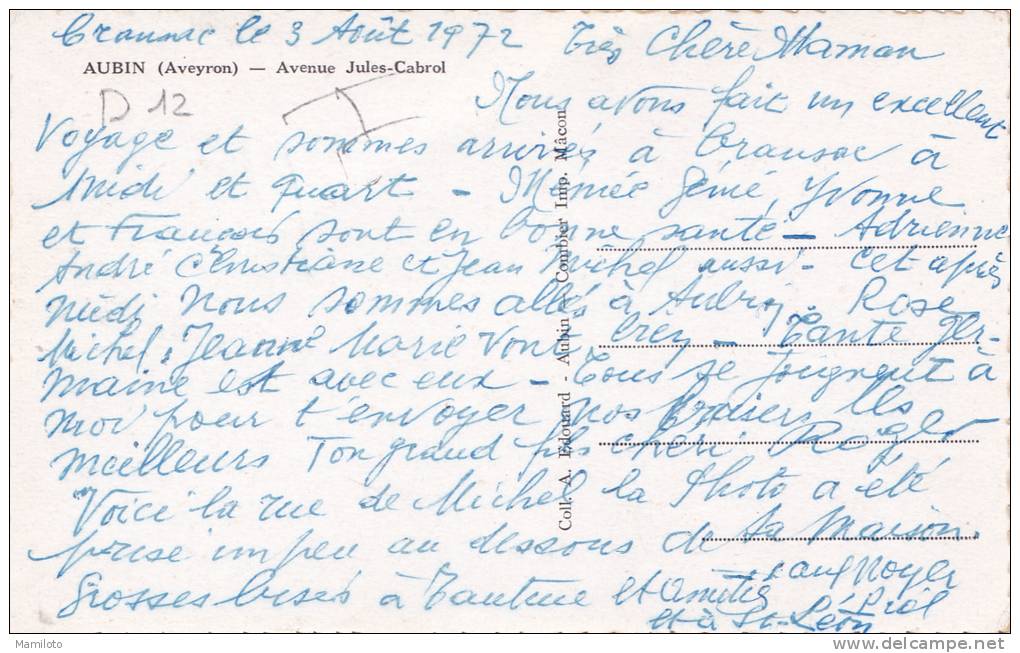 Cransac le 3 Août 1972 Très Chère Maman
AUBIN (Aveyron) — Avenue Jules-Cabrol
D 12
Nous avons fait un excellent
voyage et sommes arrivés à Cransac à
Midi et quart - Mémée Génie, Yvonne
et François sont en bonne santé - Adrienne
André Christiane et Jean Michel aussi - Cet après
midi nous sommes allés à Aubin. Rose,
Michel, Jeanne Marie vont bien - Tante Ger-
maine est avec eux - Tous se joignent à
moi pour t'envoyer nos baisers les
meilleurs Ton grand fils chéri Roger
Voici la rue de Michel la photo a été
prise un peu au dessous de sa maison.
Grosses bises à Tantine et Amitiés aux Noyer
et à St-Léon
Coll. A. Edouard - Aubin - Combier Imp. Mâcon
Mamiloto
www.delcampe.net